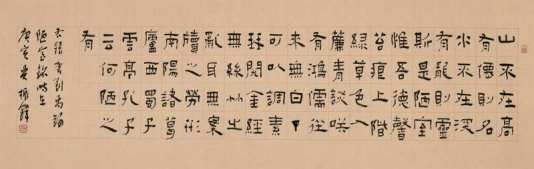 山不在高
有僊則名
水不在深
有龍則靈
斯是陋室
惟吾德馨
苔痕上階
綠草色入
簾青談咲
有鴻儒往
來無白丁
可以調素
琴閱金經
無絲竹之
亂耳無案
牘之勞形
南陽諸葛
廬西蜀子
雲亭孔子
云何陋之
有
劉禹錫
陋室銘時在
庚寅